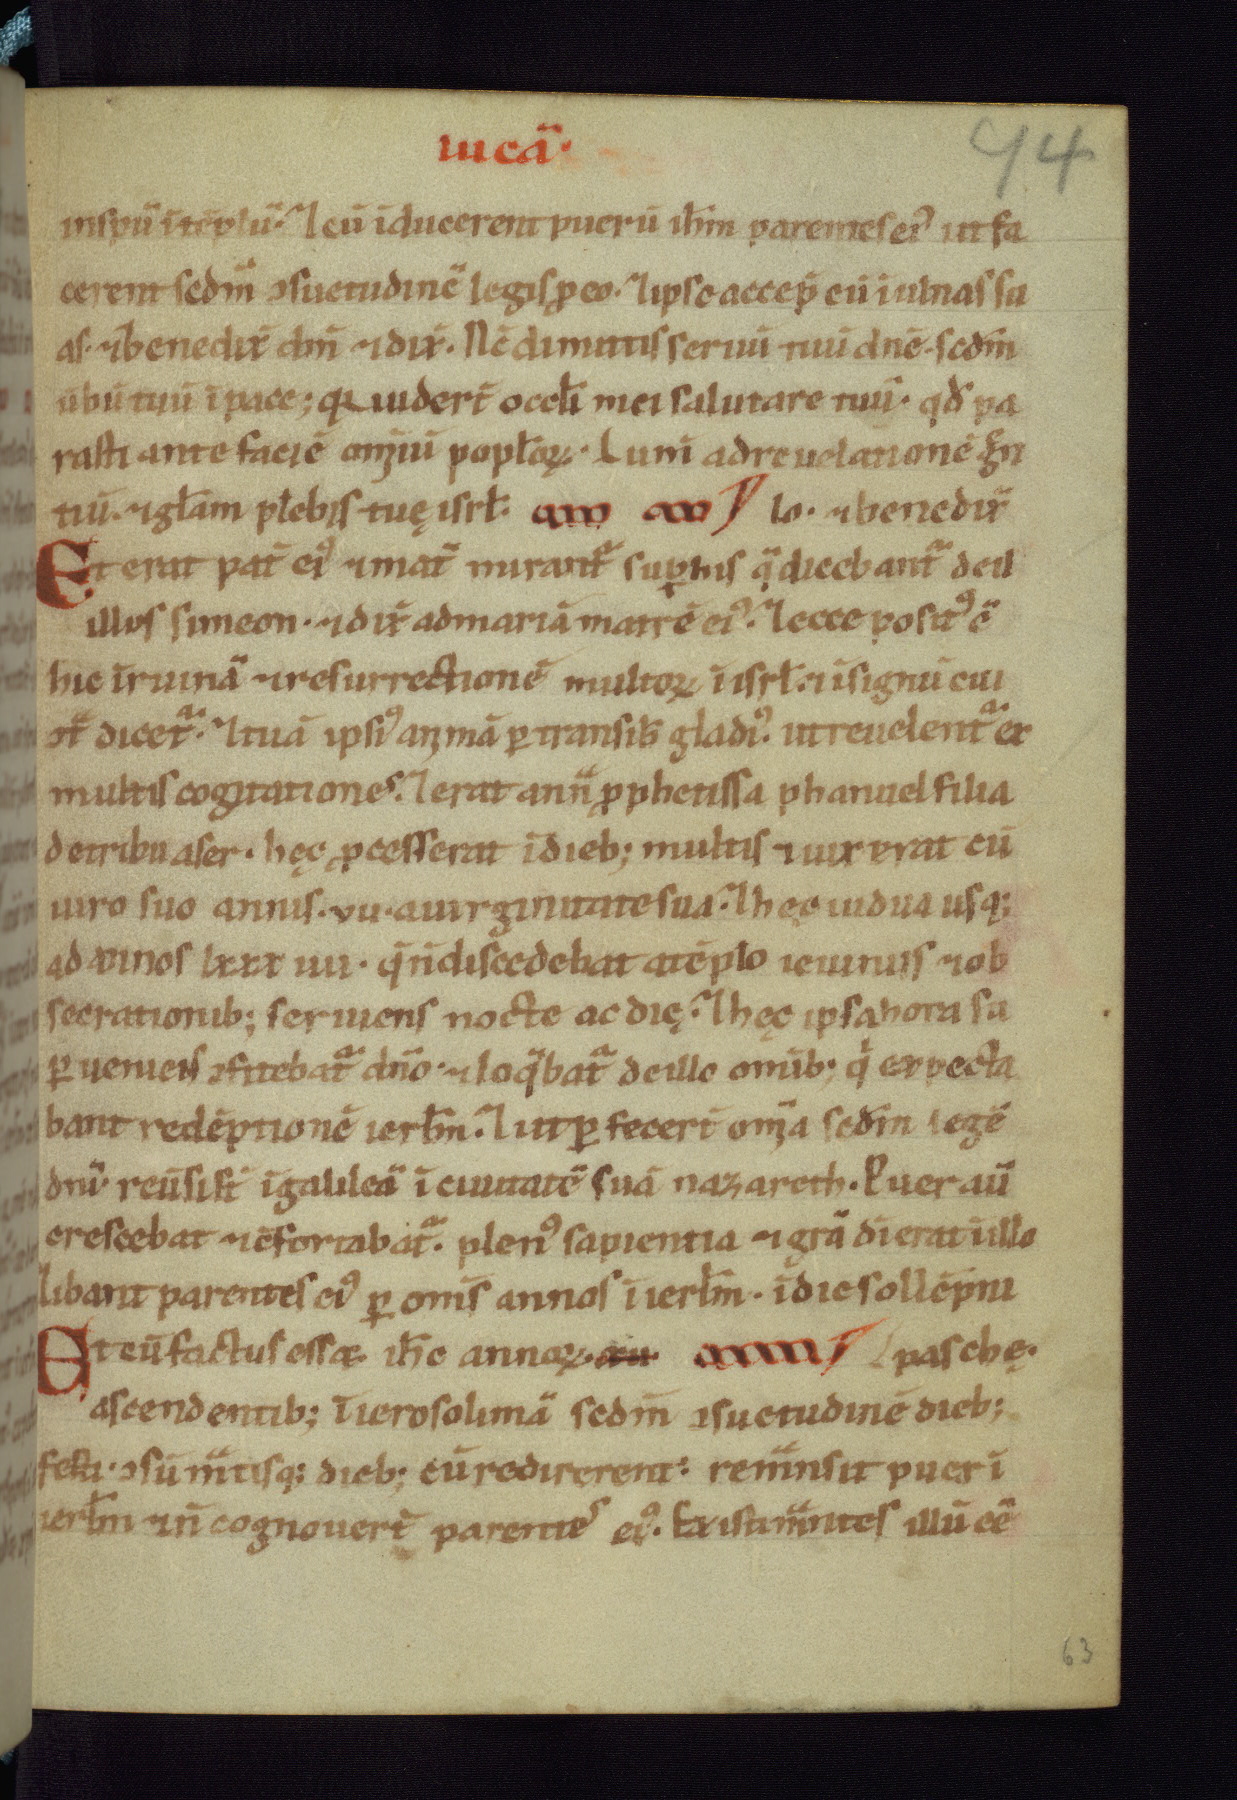 lucā·
94
inspū ī tēplū· ⁊ cū īducerent puerū ihm̄ parentes ei⁹ ut fa
cerent scdm̄ ↄsuetudinē legis ꝓ eo· ⁊ ipse accep̄ eū ī ulnas su
as· ⁊ benedix̄ dm̄ ⁊ dix̄· Nc̄ dimittis seruū tuū dn̄e· scdm̄
ūbū tuū ī pace; q̄ uider̄t oceli mei salutare tuū· qd̄ pa
rasti ante faciē om̄iū poploꝝ· Lum̄ ad reuelationē gn̄
tiū· ⁊ glam̄ plebis tuę isrl̄· lo· ⁊ benedix̄
Et erat pat̄ ei⁹ ⁊ mat̄ mirant̄ sup his q̄ dicebant̄ de il
illos simeon· ⁊ dix̄ ad mariā matrē ei⁹· ⁊ ecce posit⁹ ē
hic ī ruinā ⁊ resurrectionē multoꝝ ī isrl̄· ⁊ ī signū cui
ↄt̄ dicet̄· ⁊ tuā ipsi⁹ anımā ꝑtransib̄ gladi⁹· ut reuelent̄ ex
multis cogitationes· ⁊ erat ann̄ ꝓphetissa phanuel filia
de tribu aser· hęc ꝓcesserat ī dieb; multis ⁊ uixerat cū
uiro suo annis· vii· a uirginitate sua· ⁊ hęc uidua usq;
ad annos lxxx iiii· q̄ n̄ discedebat a tēplo ieiuniis ⁊ ob
secrationib; seruiens nocte ac dię· ⁊ hęc ipsa hora su
ꝑueniens ↄfitebat̄ dn̄o· ⁊ loq̄bat̄ de illo om̄ib; q̄ expecta
bant redēptionē ierlm̄· ⁊ ut ꝑfecer̄t om̄a scdm̄ legē
dn̄i reūsi st̄ ī galileā ī ciuitatē suā nazareth· Puer aū
crescebat ⁊ cōfortabat̄· plen⁹ sapientia ⁊ gr̄a dī erat ī illo
Ibant parentes ei⁹ ꝑ om̄s annos ī ierlm̄· ī die sollēpni
Et cū factus esset ihc annoꝝ· xii· paschę·
ascendentib; ī ierosolimā scdm̄ ↄsuetudinē dieb;
festi· ↄsūm̄tisq; dieb; cū redirerent· rem̄nsit puer ī
ierlm̄ ⁊ n̄ cognouer̄t parentes ei⁹· Existim̄ntes illū eē
63